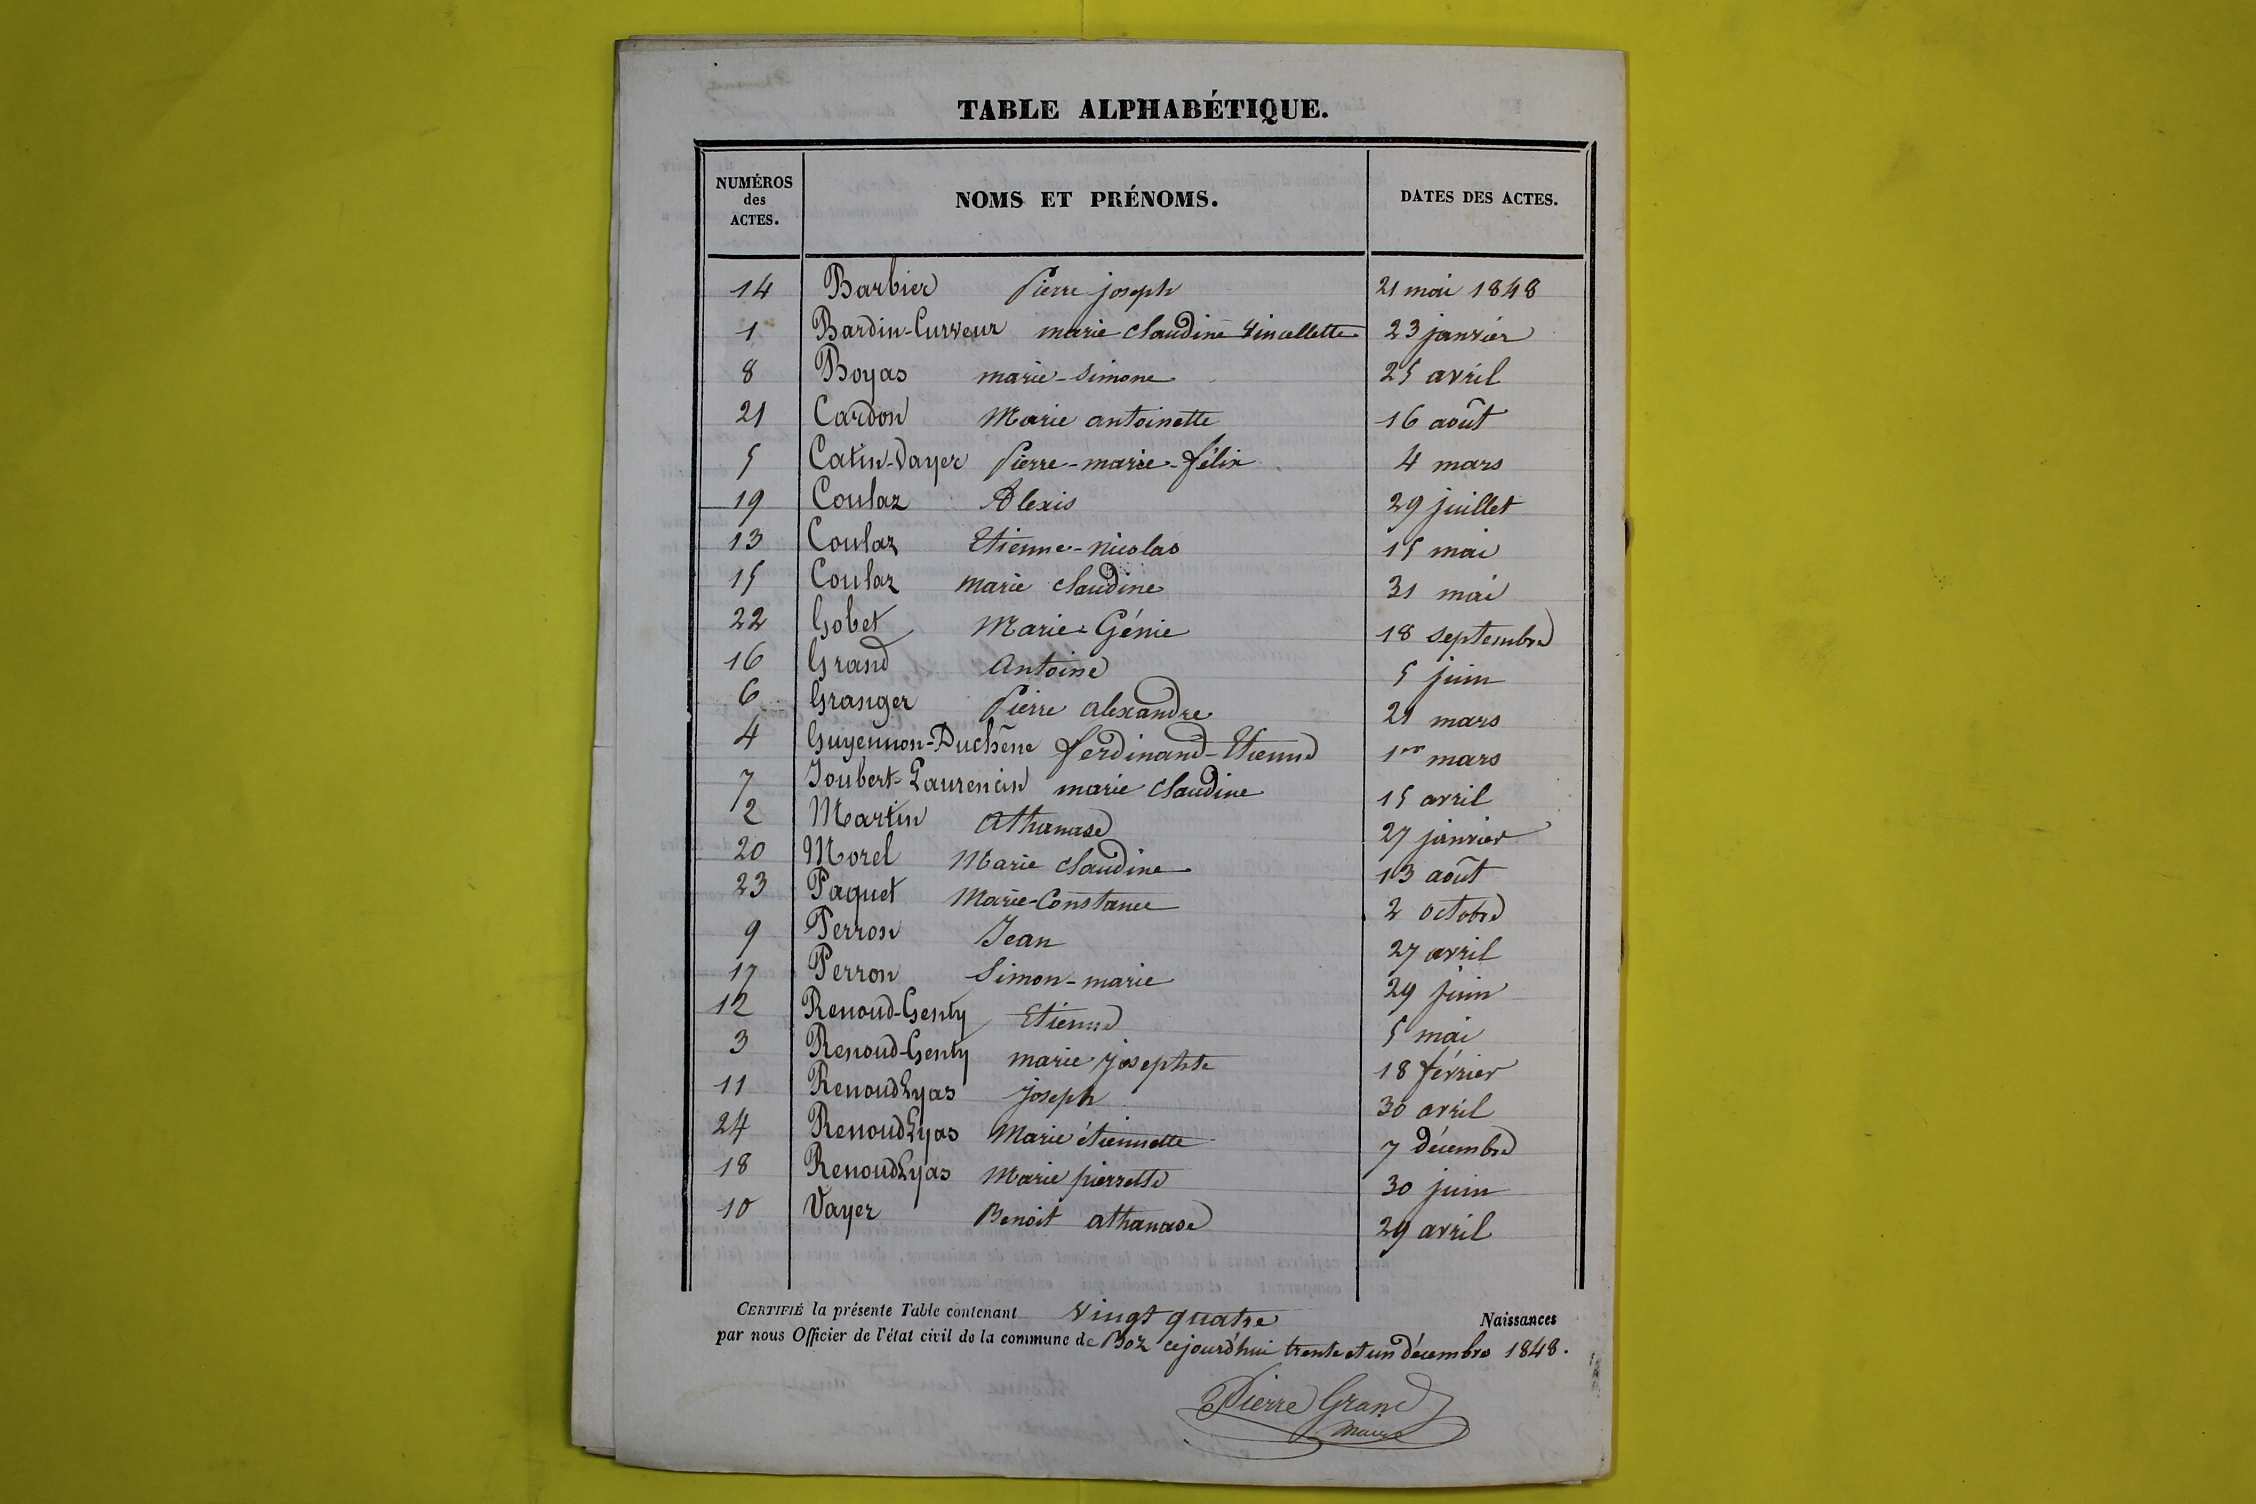 TABLE ALPHABÉTIQUE.
NUMÉROS des ACTES. NOMS ET PRÉNOMS. DATES DES ACTES.
14 Barbier Pierre joseph 21 mai 1848
1 Bardin-Curveur marie claudine Vincellette 23 janvier
8 Boyas marie-simone 25 avril
21 Cardon Marie antoinette 16 août
5 Catin-Vayer Pierre-marie-félix 4 mars
19 Coulaz Alexis 29 juillet
13 Coulaz Etienne-nicolas 15 mai
15 Coulaz marie claudine 31 mai
22 Gobet Marie-Génie 18 septembre
16 Grand antoine 5 juin
6 Granger Pierre alexandre 21 mars
4 Guyennon-Duchêne ferdinand-Etienne 1er mars
7 Joubert-Laurencin marie claudine 15 avril
2 Martin athanase 27 janvier
20 Morel Marie claudine 13 août
23 Paquet Marie-Constance 2 octobre
9 Perron Jean 27 avril
17 Perron Simon-marie 29 juin
12 Renoud-Genty Etienne 5 mai
3 Renoud-Genty marie josephte 18 février
11 RenoudLyas joseph 30 avril
24 RenoudLyas Marie étiennette 7 décembre
18 RenoudLyas Marie pierrette 30 juin
10 Vayer Benoit athanase 29 avril
CERTIFIÉ la présente Table contenant vingt quatre Naissances
par nous Officier de l'état civil de la commune de Boz cejourd'hui trente et un décembre 1848.
Pierre Grand
Maire